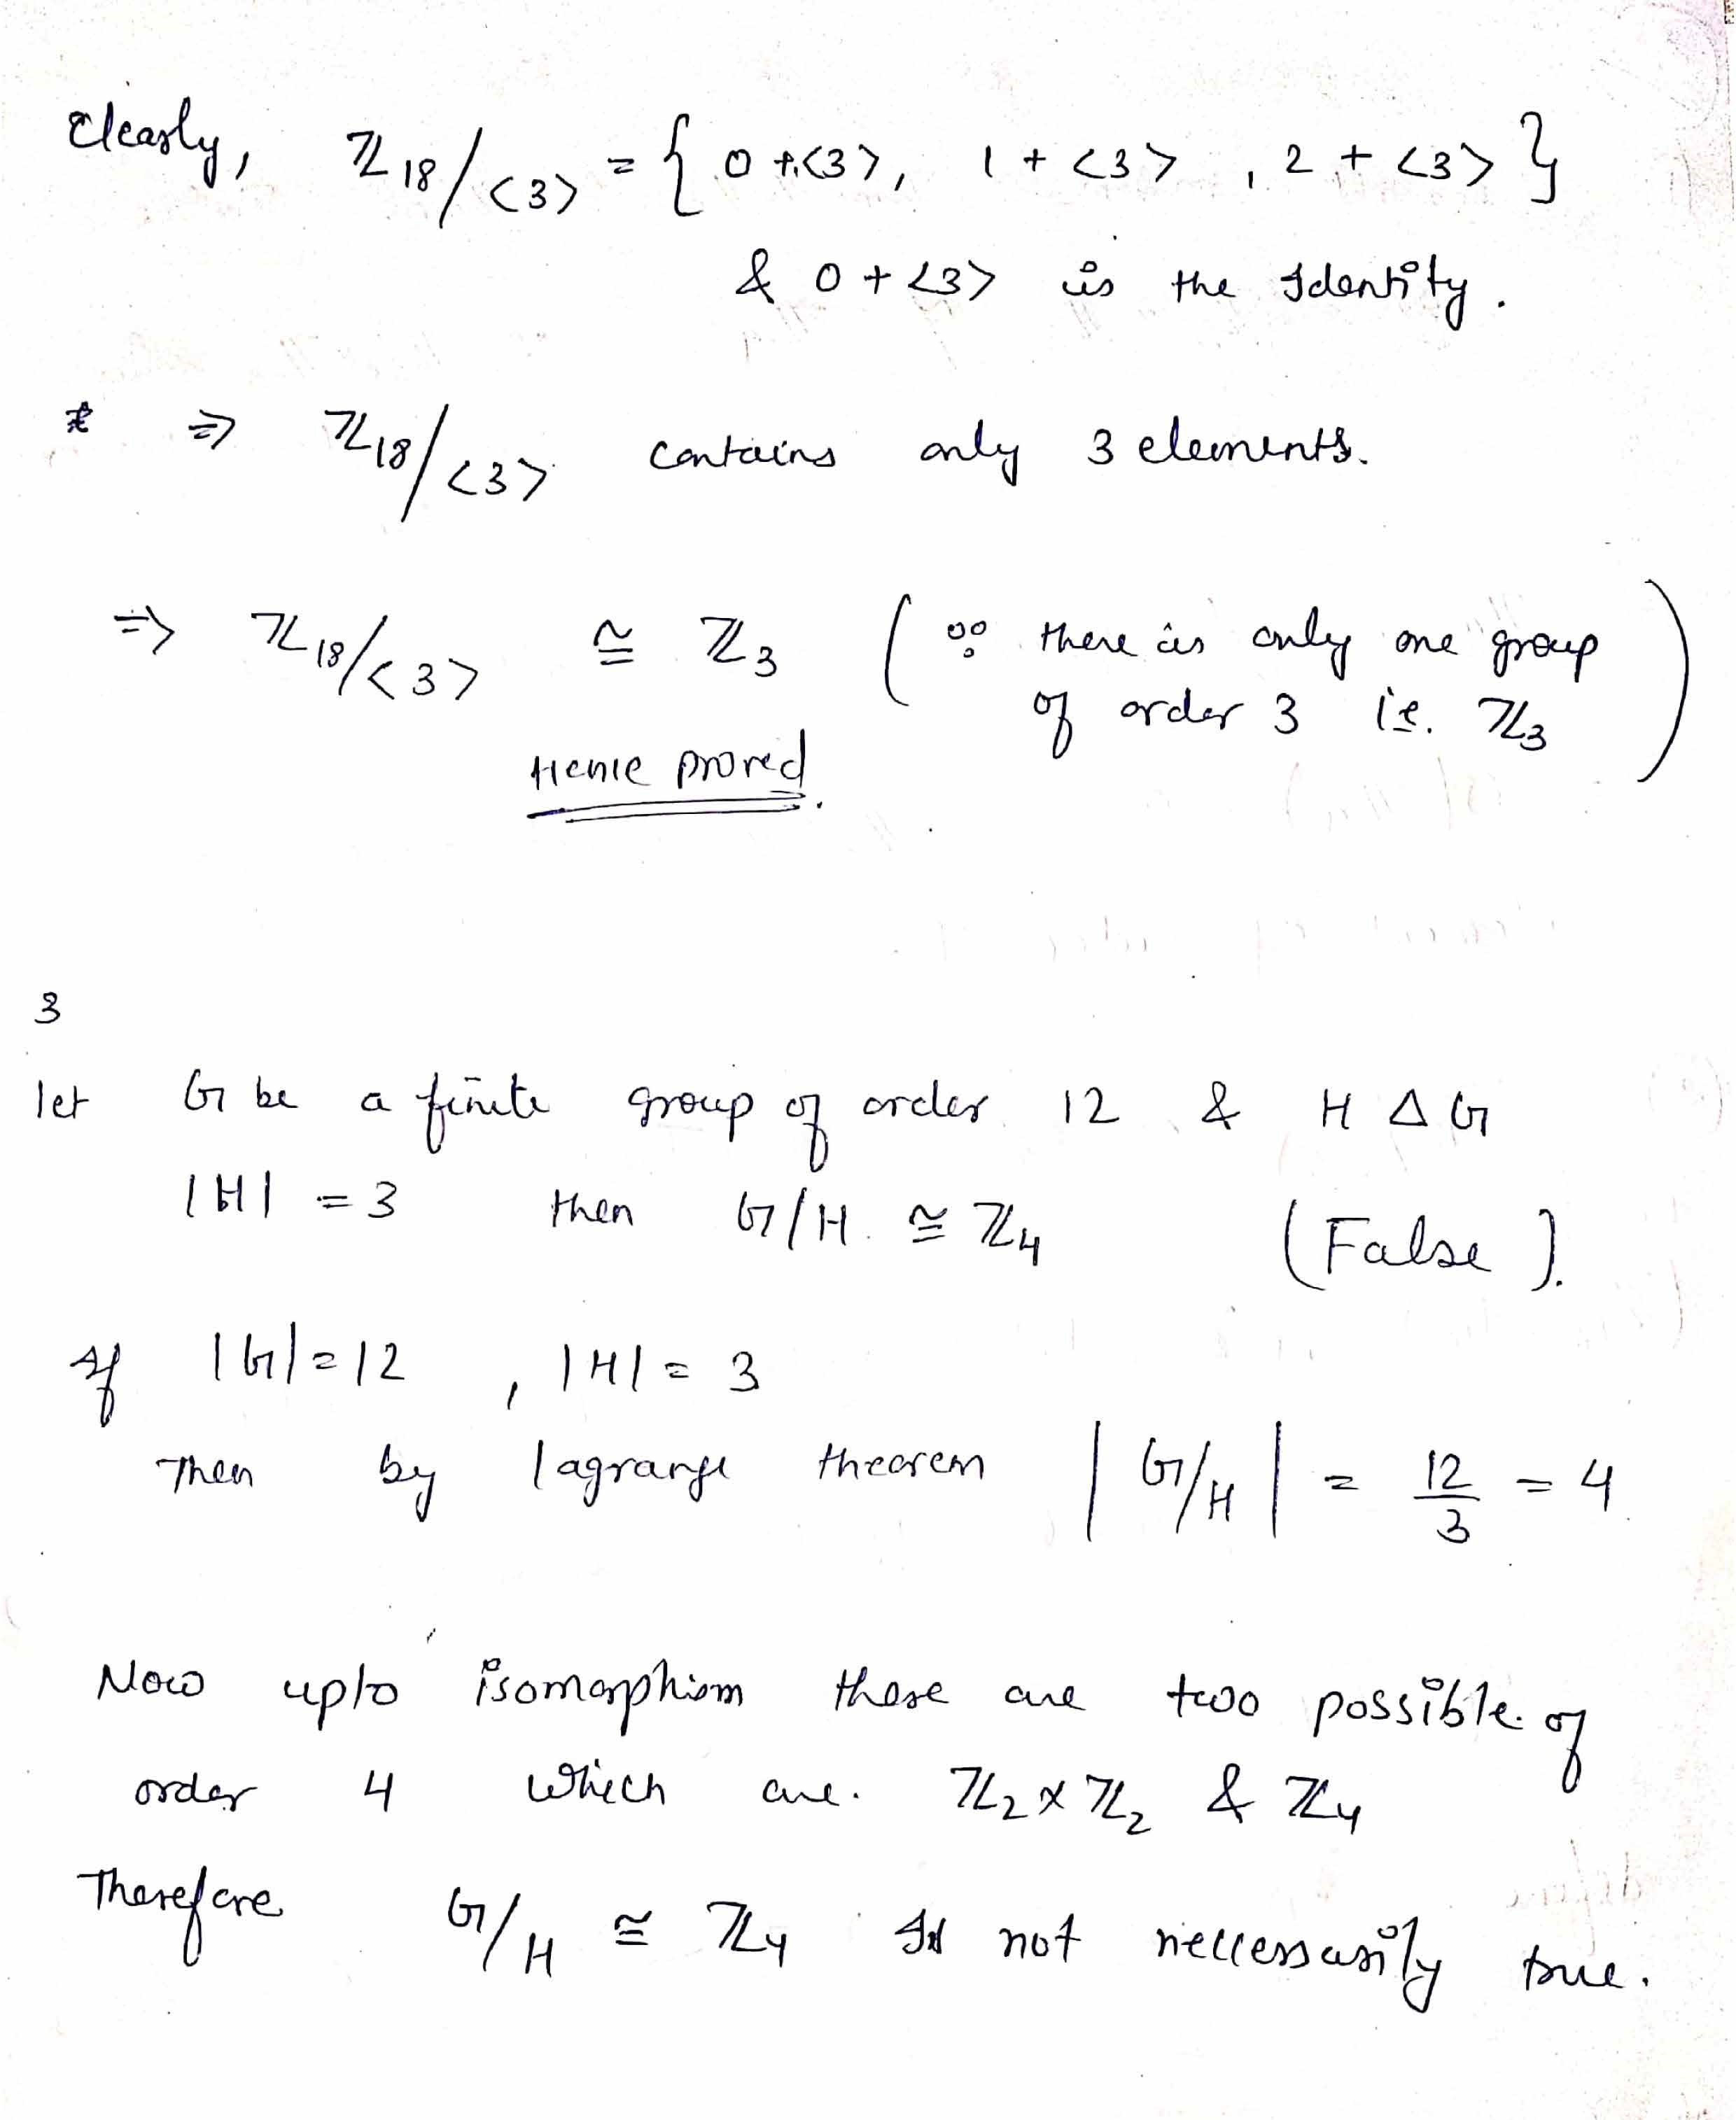 Clearly, ℤ18/<3> = { 0+<3>, 1+<3>, 2+<3> }
& 0+<3> is the Identity.
* ⇒ ℤ18/<3> contains only 3 elements.
⇒ ℤ18/<3> ≅ ℤ3 ( ∵ there is only one group
of order 3 i.e. ℤ3 )
Hence proved.
3
let G be a finite group of order 12 & H Δ G
|H| = 3 then G/H. ≅ ℤ4 (False).
If |G|=12, |H|= 3
Then by lagrange theorem |G/H| = 12/3 = 4
Now upto isomorphism there are two possible of
order 4 which are. ℤ2 x ℤ2 & ℤ4
Therefore G/H ≅ ℤ4 Is not neccessarily true.